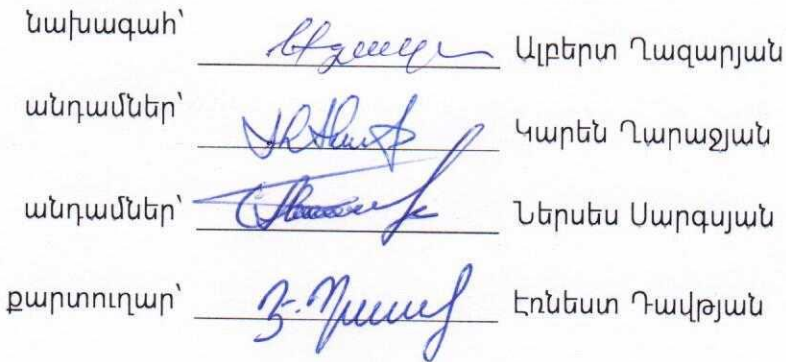 նախագահ՝ Ալբերտ Ղազարյան
անդամներ՝ Կարեն Ղարաջյան
անդամներ՝ Ներսես Սարգսյան
քարտուղար՝ Էռնեստ Դավթյան